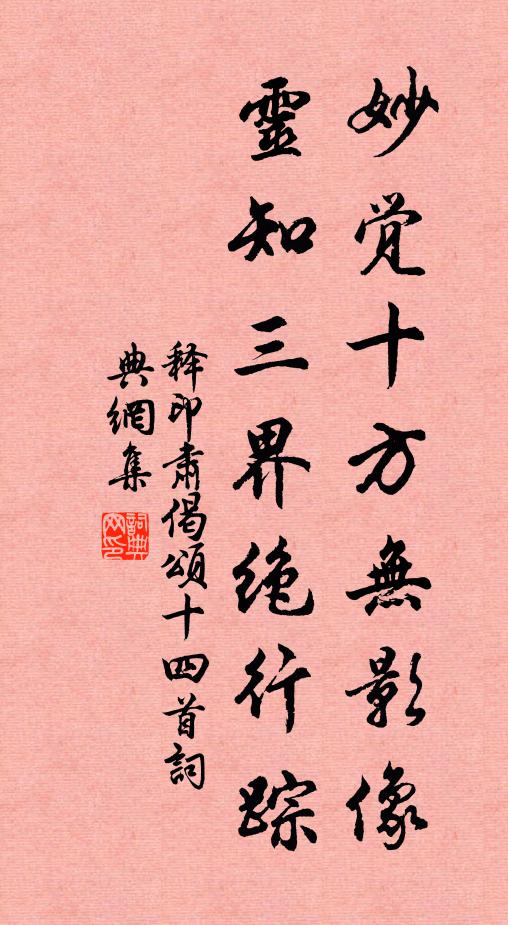 妙觉十方無影像
靈知三界绝行踪
释印肃偈頌十四首詞
典網集
詞典網印